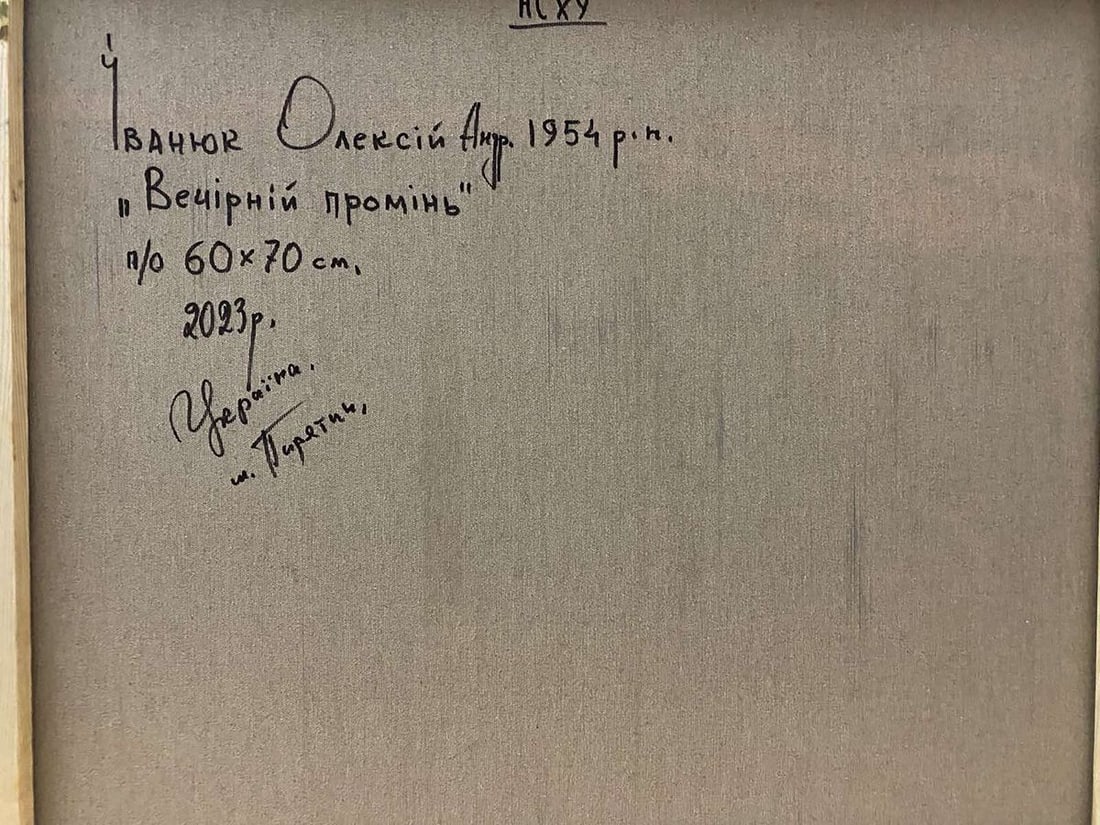 НСХУ
Іванюк Олексій Андр. 1954 р.н.
„Вечірній промінь"
п/о 60×70 см.
2023р.
Україна.
м. Пирятин,